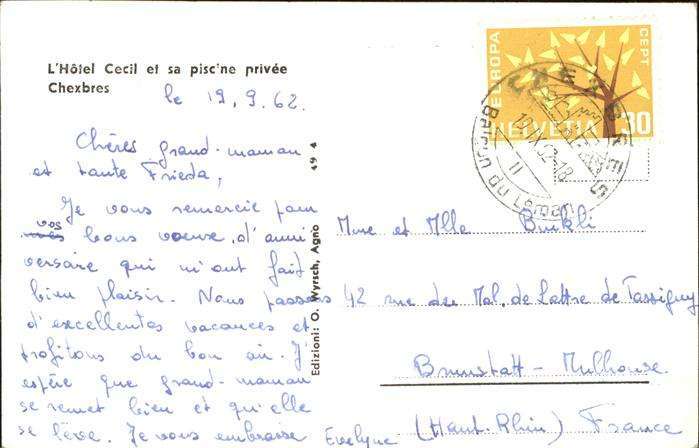 L'Hôtel Cecil et sa pisc'ne privée
Chexbres
le 19.9.62.
Chères grand-maman
et tante Frieda,
Je vous remercie pour
vos bons voeux d'anni
versaire qui m'ont fait
bien plaisir. Nous passons
d'excellentes vacances et
profitons du bon air. J'
espère que grand-maman
se remet bien et qu'elle
se lève. Je vous embrasse Evelyne
49 4
Edizioni: O. Wyrsch, Agno
EUROPA
CEPT
HELVETIA
30
CHEXBRES
19.IX.62-18
11
Balcon du Léman
Mme et Mlle Burkli
42 rue du Mal. de Lattre de Tassigny
Brunstatt - Mulhouse
(Haut-Rhin) France